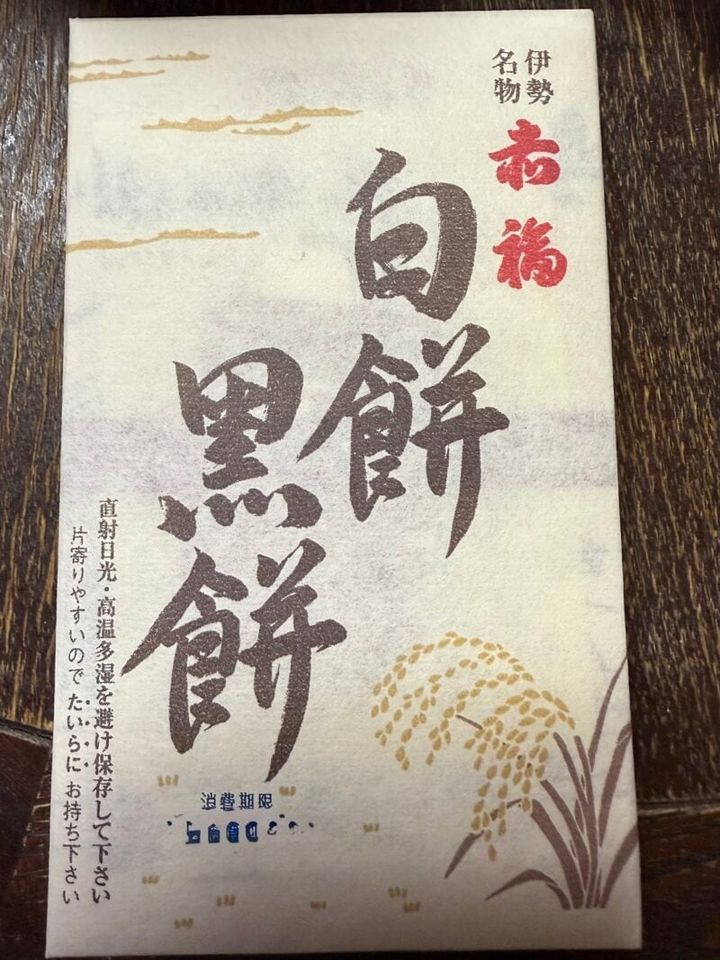 伊勢
名物
赤福
白餅
黒餅
直射日光・高温多湿を避け保存して下さい
片寄りやすいので たいらに お持ち下さい
消費期限